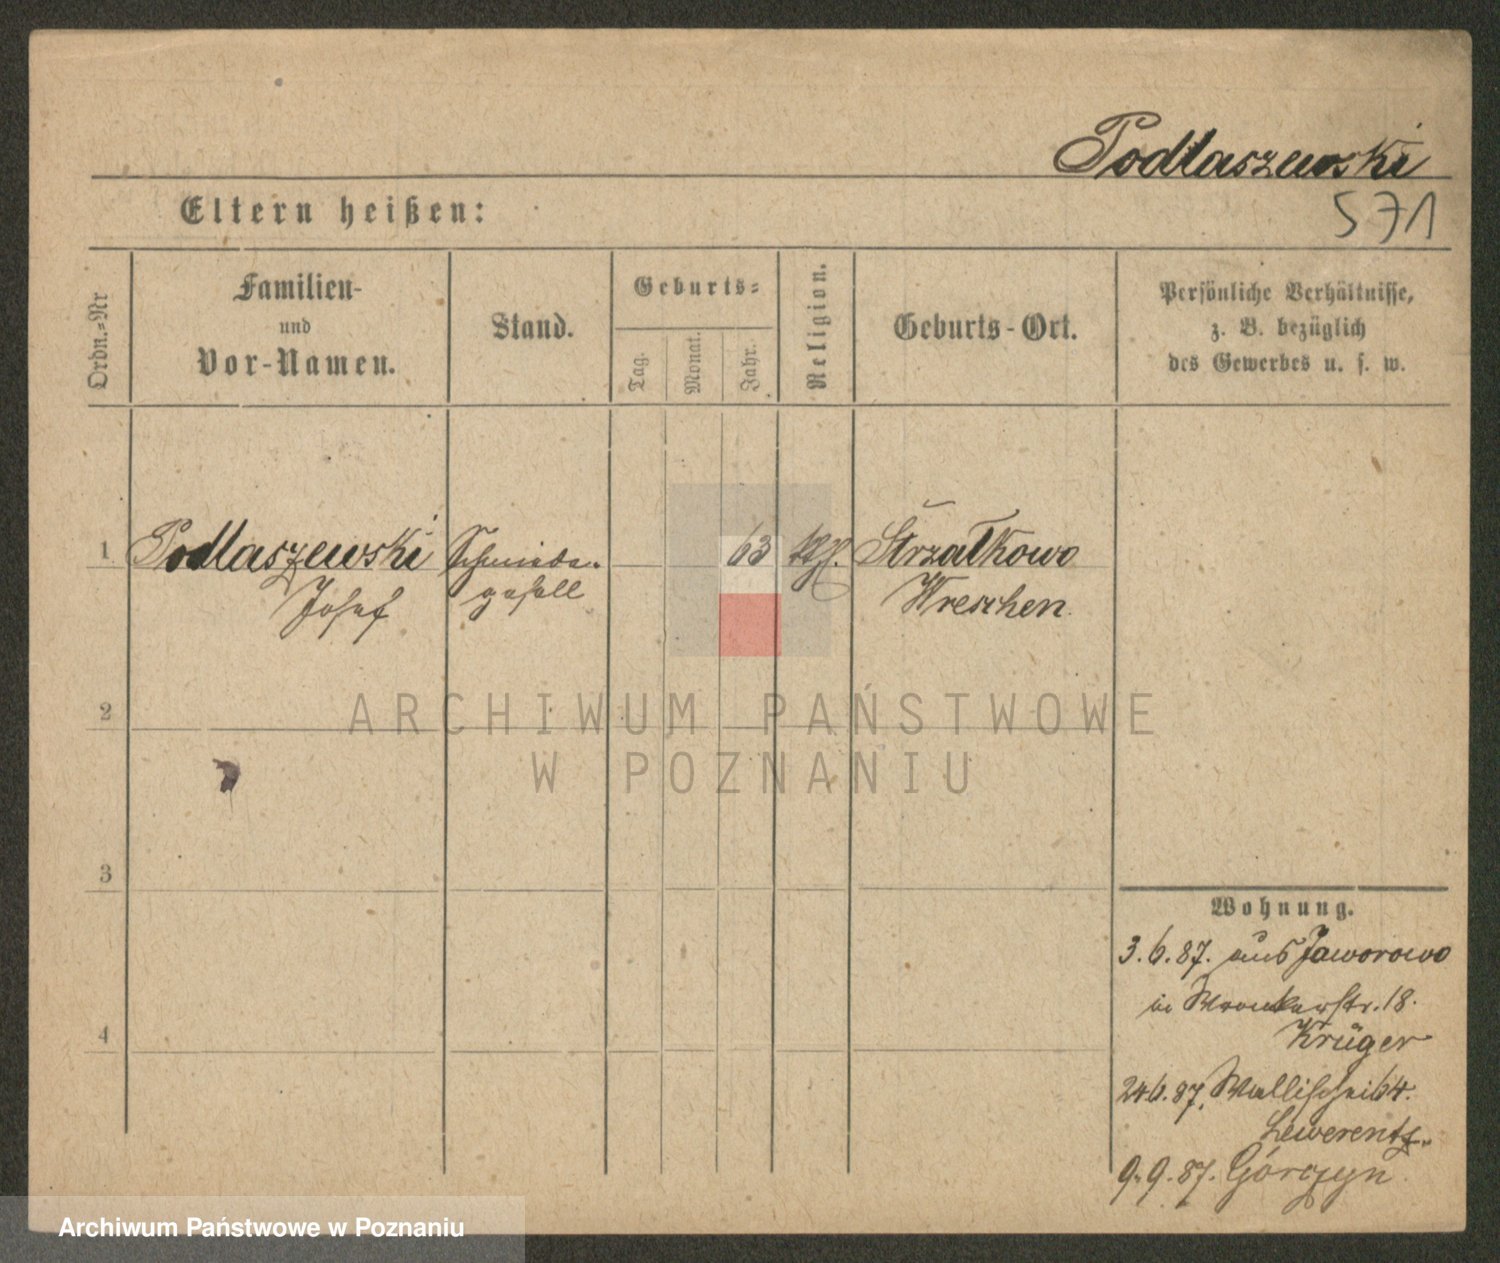 Podlaszewski
571
Eltern heißen:
Ordn.=Nr
Familien-
und
Vor-Namen.
Stand.
Geburts=
Tag.
Monat.
Jahr.
Religion.
Geburts-Ort.
Persönliche Verhältnisse,
z. B. bezüglich
des Gewerbes u. s. w.
1 Podlaszewski Schmiede- 63 kth. Strzałkowo
Josef gesell Wreschen.
2
ARCHIWUM PAŃSTWOWE
W POZNANIU
3
Wohnung.
3.6.87. aus Jaworowo
in Wronkerstr. 18.
4
Krüger
24.6.87. Wallischei 64.
Lewerentz.
9.9.87. Górczyn.
Archiwum Państwowe w Poznaniu